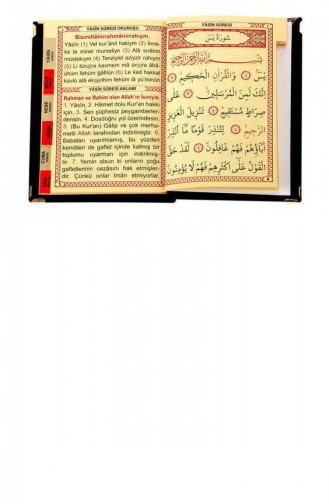 YÂSİN SÛRESİ OKUNUŞU
Bismillâhirrahmânirrahıym.
Yâsîn (1) Vel kur'ânil hakiym (2) İnna-
ke le minel murseliyn (3) Alâ sırâtım
müstekıym (4) Tenziylel aziyzir rahiym
(5) Li tünzira kavmem mâ ünzira âbâ-
ühüm fehüm ğâfilûn (6) Le kad hakkal
kavlü alâ ekserihim fehüm lâ yü'minûn
YÂSİN SÛRESİ ANLAMI
Rahman ve Rahim olan Allah'ın İsmiyle.
1. Yâsîn, 2. Hikmet dolu Kur'an hakkı
için, 3. Sen şüphesiz peygamberler-
densin. 4. Dosdoğru yol üzerindesin.
5. (Bu Kur'an) Gâlip ve çok merha-
metli Allah tarafından indirilmiştir. 6.
Babaları uyarılmamış, bu yüzden
kendileri de gaflet içinde kalmış bir
toplumu uyarman için indirilmiş-
tir. 7. Yemin olsun ki onların çoğu
gafletlerinin cezasını hak etmişler-
dir. Çünkü onlar îmân etmiyorlar.
YÂSİN SÛRESİ
سُورَةُ يٰسٓ
بِسْمِ اللّٰهِ الرَّحْمٰنِ الرَّحِيمِ
يٰسٓ ﴿١﴾ وَالْقُرْاٰنِ الْحَكِيمِ ﴿٢﴾
اِنَّكَ لَمِنَ الْمُرْسَلِينَ ﴿٣﴾ عَلٰى
صِرَاطٍ مُسْتَقِيمٍ ﴿٤﴾ تَنْزِيلَ الْعَزِيزِ
الرَّحِيمِ ﴿٥﴾ لِتُنْذِرَ قَوْمًا مَٓا اُنْذِرَ
اٰبَٓاؤُهُمْ فَهُمْ غَافِلُونَ ﴿٦﴾ لَقَدْ حَقَّ
الْقَوْلُ عَلٰٓى اَكْثَرِهِمْ فَهُمْ لَا يُؤْمِنُونَ